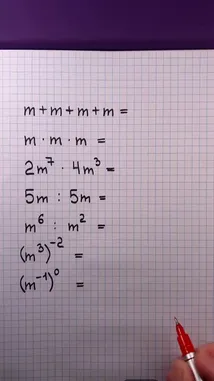 m + m + m + m =
m · m · m =
2m⁷ · 4m³ =
5m : 5m =
m⁶ : m² =
(m³)⁻² =
(m⁻¹)⁰ =